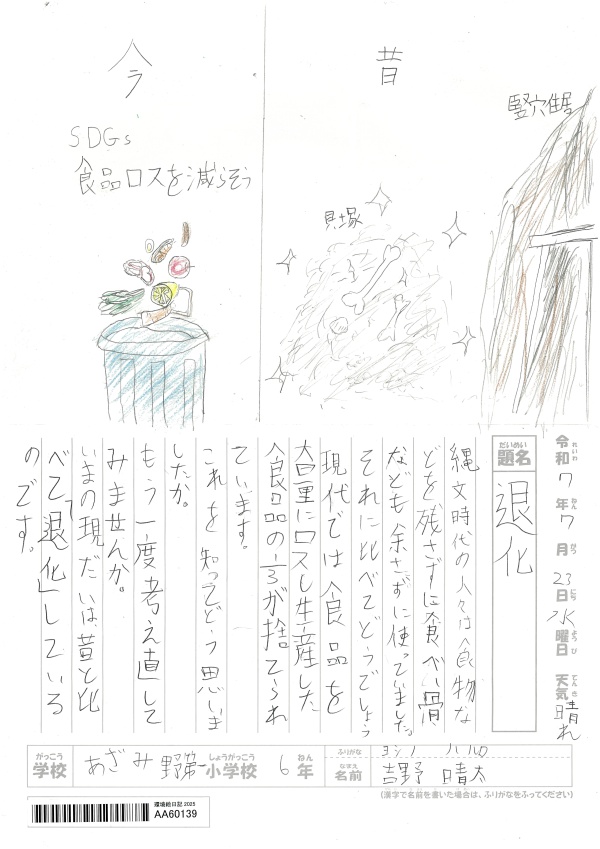 昔
竪穴住居
貝塚
今
SDGs
食品ロスを減らそう
令和れいわ 7年ねん 7月がつ 23日にち 水曜日ようび 天気てんき 晴れ
題名だいめい 退化
縄文時代の人々は食物な
どを残さずに食べ、骨
なども余さずに使っていました。
それに比べてどうでしょう
現代では食品を
大量にロスし生産した
食品の1/3が捨てられ
ています。
これを知ってどう思いま
したか。
もう一度考え直して
みませんか。
いまの現だいは、昔と比
べて「退化」している
のです。
がっこう しょうがっこう ねん ふりがな ヨシノ
学校 あざみ野第一小学校 6年 なまえ 名前 吉野 晴太
(漢字で名前を書いた場合は、ふりがなをふってください)
環境絵日記 2025
AA60139